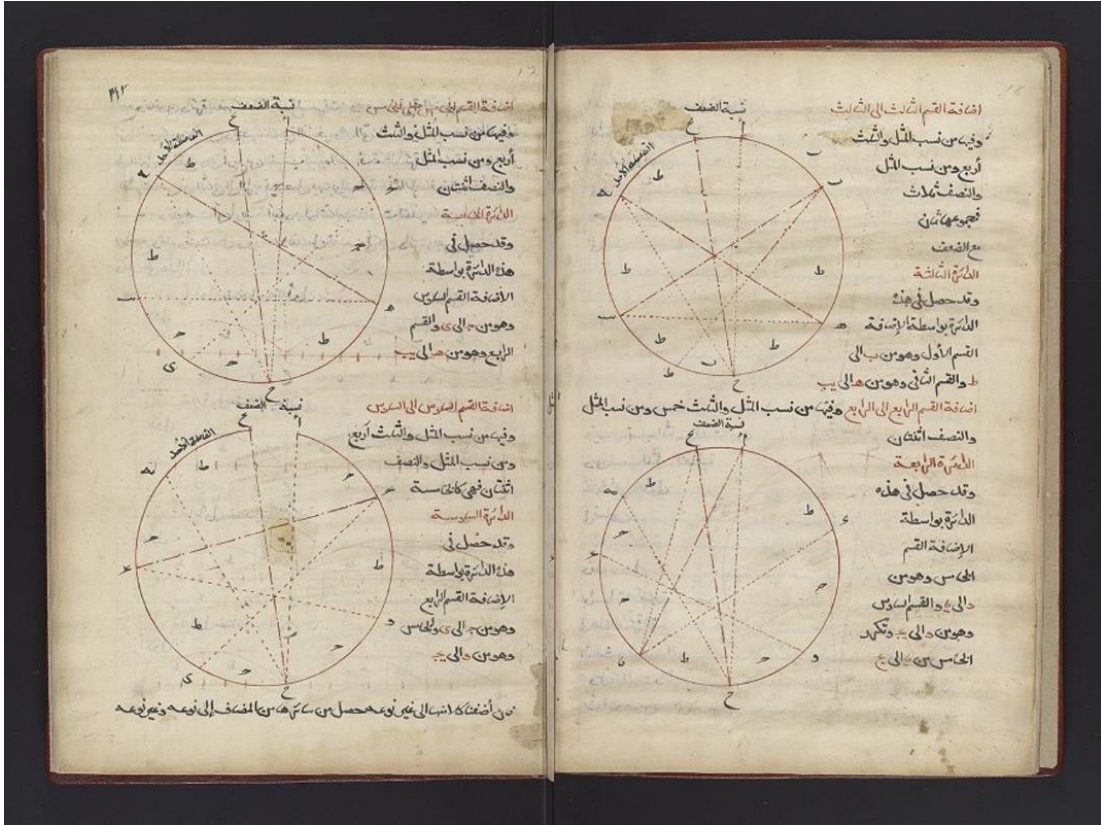 اضافة القسم الثالث الى الثالث
نسبة الضعف
وفيها من نسب المثل والثلث
أربع ومن نسب المثل
والنصف ثلاث
فمجموعها ثمان
مع الضعف
الدائرة الثالثة
وقد حصل فى هذه
الدائرة بواسطة الإضافة
القسم الأول وهو من ب الى
ط والقسم الثانى وهو من ه الى يب
الفاصلة الأحد
اضافة القسم الرابع الى الرابع وفيها من نسب المثل والثلث خمس ومن نسب المثل
نسبة الضعف
والنصف اثنتان
الدائرة الرابعة
وقد حصل فى هذه
الدائرة بواسطة
الإضافة القسم
الخامس وهو من
والقسم السادس
وهو من
الخامس من
اضافة القسم الخامس
نسبة الضعف
وفيها من نسب المثل والثلث
أربع ومن نسب المثل
والنصف اثنتان
الدائرة الخامسة
وقد حصل فى
هذه الدائرة بواسطة
الاضافة القسم السادس
وهو من ج الى ى والقسم
الرابع وهو من ه الى يب
الفاصلة الأحد
اضافة القسم السادس الى السادس
نسبة الضعف
وفيها من نسب المثل والثلث أربع
ومن نسب المثل والنصف
اثنتان فهى كالخامسة
الدائرة السادسة
وقد حصل فى
هذه الدائرة بواسطة
الإضافة القسم الرابع
وهو من ج الى ى والخامس
وهو من د الى
الفاصلة الأحد
الى غير نوعه حصل من سائرها من المضاف إلى نوعه وغير نوعه